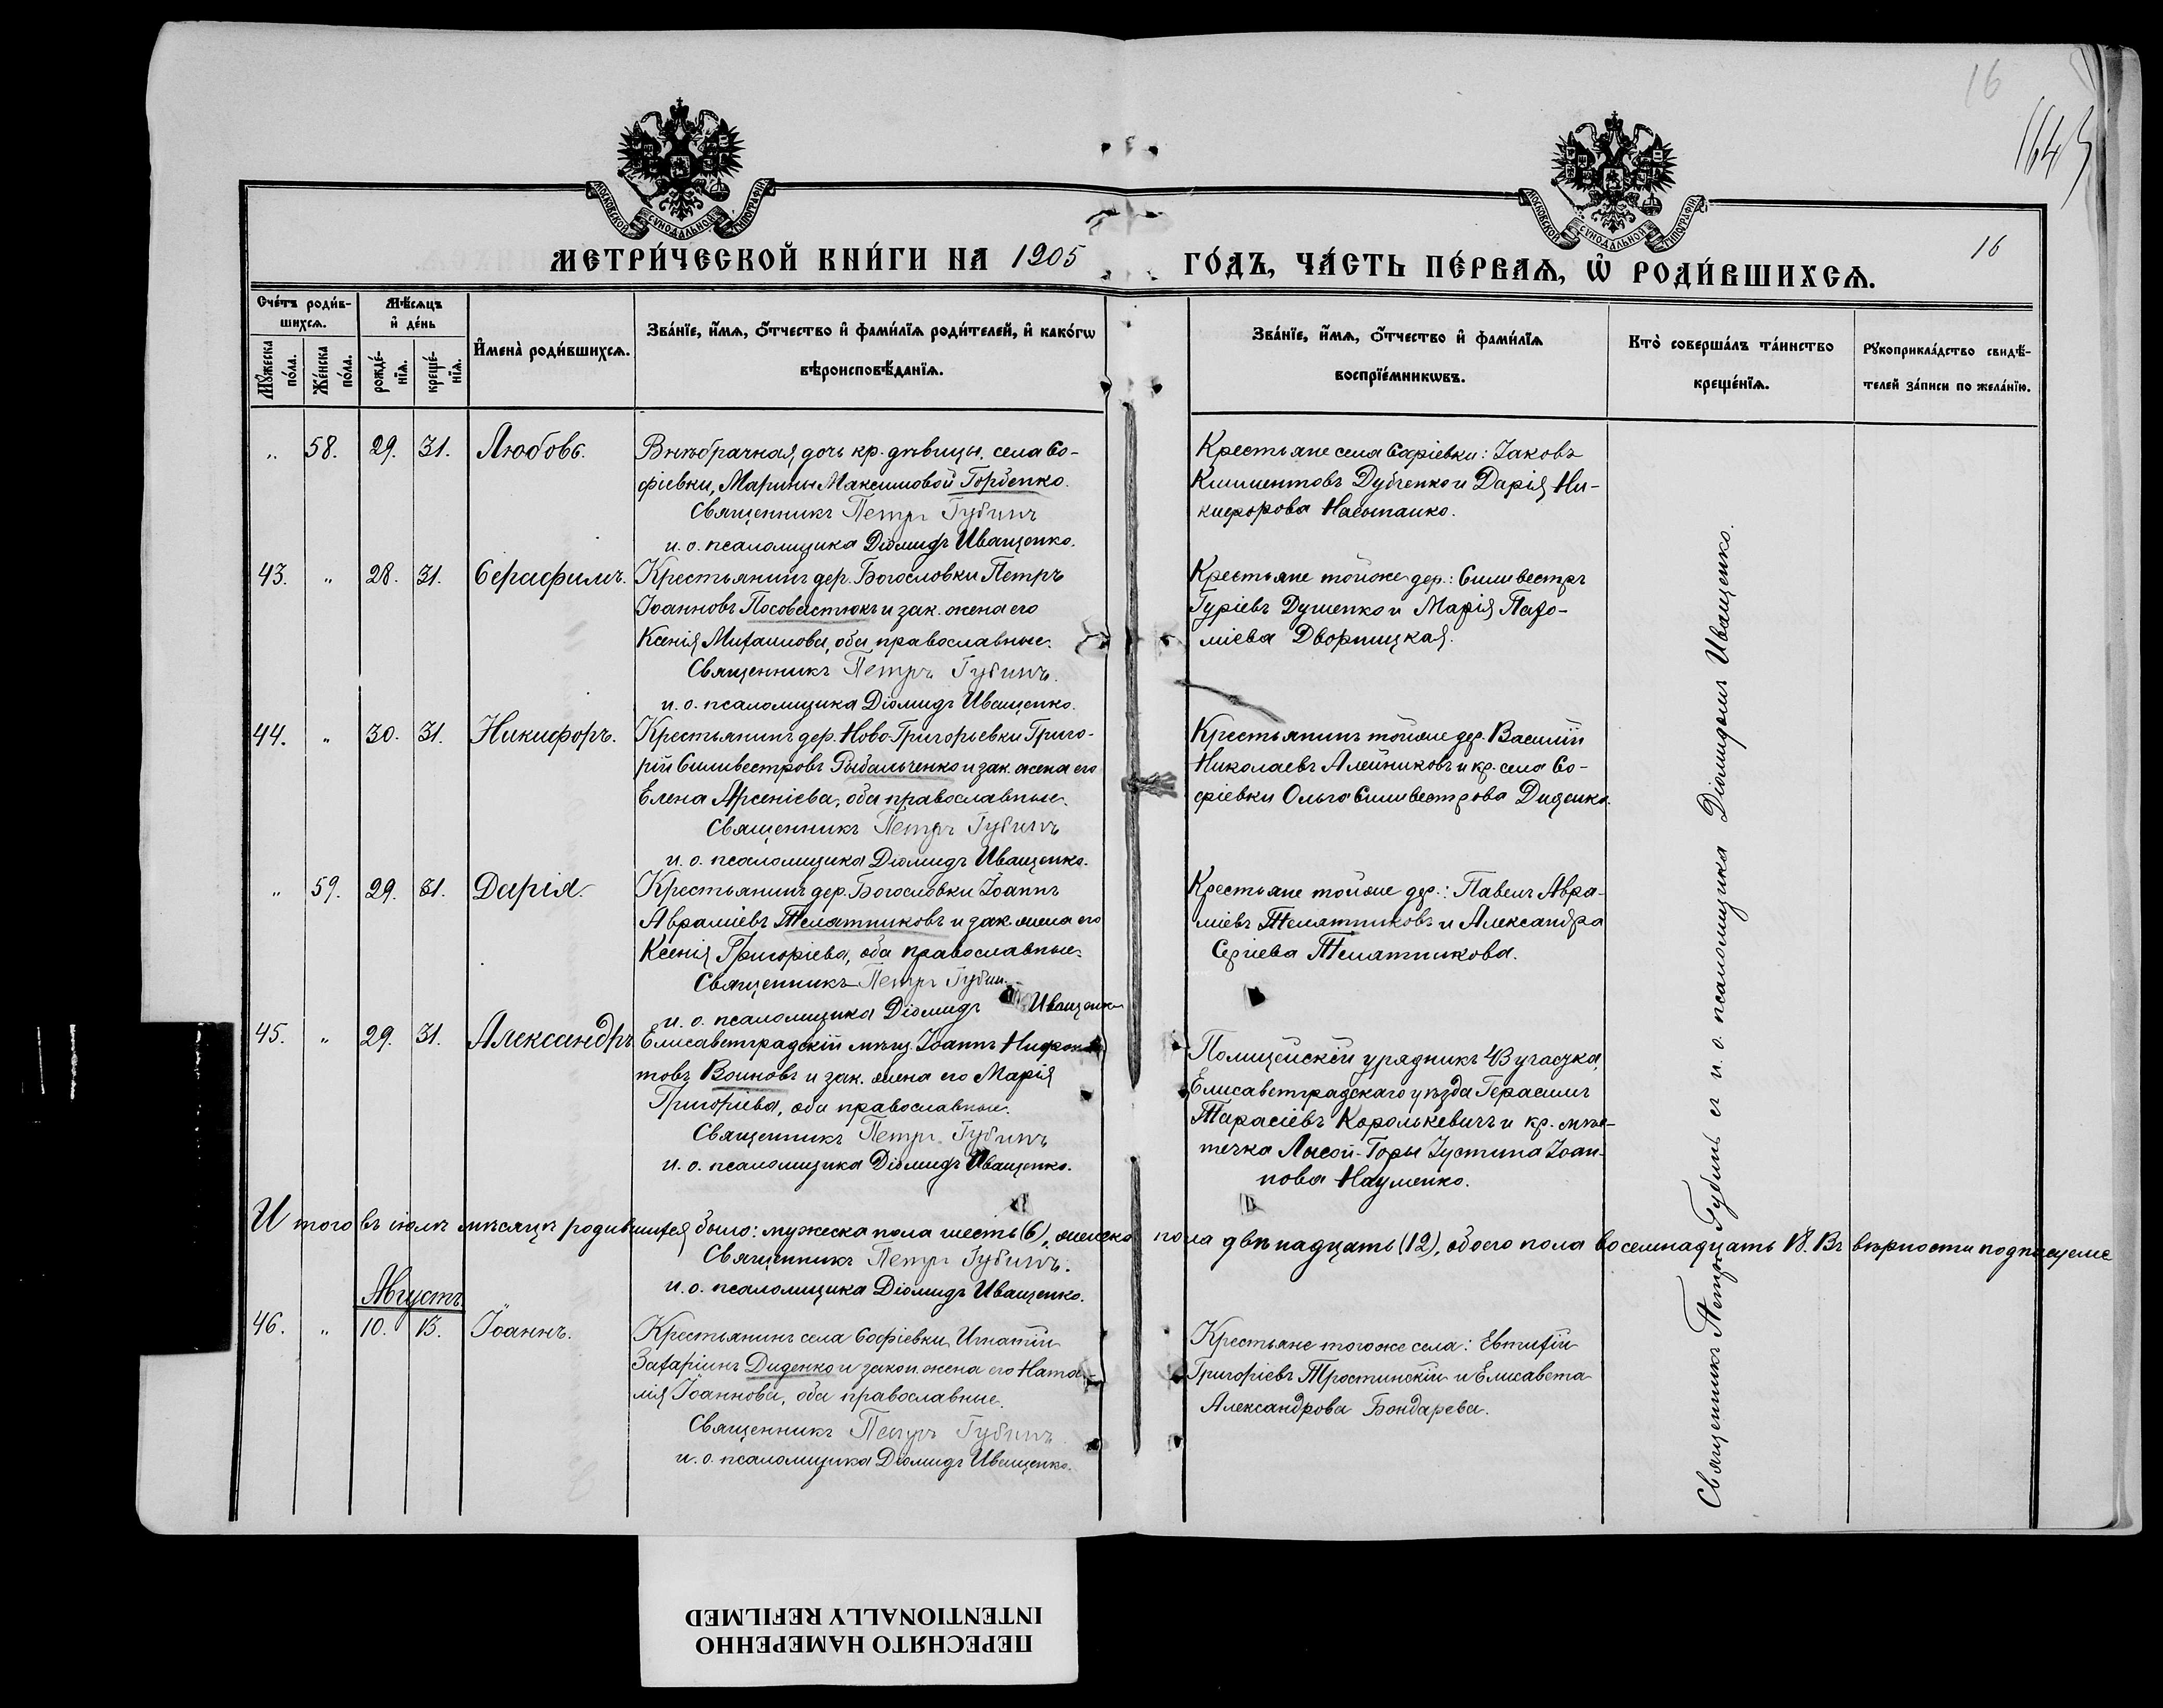 16
164
16
МОСКОВСКОЙ СУНОДАЛЬНОЙ ТИПОГРАФІИ
МОСКОВСКОЙ СУНОДАЛЬНОЙ ТИПОГРАФІИ
МЕТРИ́ЧЕСКОЙ КНИ́ГИ НА 1905 ГО́ДЪ, ЧА́СТЬ ПЕ́РВАѦ, Ѡ҆ РОДИ́ВШИХСѦ.
Сче́тъ роди́в-
шихсѧ.
Мꙋ́жеска по́ла.
Же́нска по́ла.
Мѣ́сѧцъ
и҆ де́нь
рожде́-
нїѧ.
креще́-
нїѧ.
И҆мена̀ роди́вшихсѧ.
Зва́нїе, и҆́мѧ, ѻ҆́тчество и҆ фами́лїѧ роди́телей, и҆ како́гѡ
вѣроисповѣ́данїѧ.
Зва́нїе, и҆́мѧ, ѻ҆́тчество и҆ фами́лїѧ
воспрїе́мникѡвъ.
Кто̀ соверша́лъ та́инство
креще́нїѧ.
Рꙋкоприкла́дство свидѣ́-
телей за́писи по жела́нїю.
„ 58. 29. 31. Любовь.
Внѣбрачная дочь кр. дѣвицы, села Со-
фіевки, Марины Максимовой Горбенко.
Священникъ Петръ Губинъ
и. о. псаломщика Діомидъ Иващенко.
Крестьяне села Софіевки: Іаковъ
Климентовъ Дубченко и Дарія Ни-
кифорова
43. „ 28. 31. Серафимъ.
Крестьянинъ дер. Богословки Петръ
Іоанновъ Посовастюкъ и зак. жена его
Ксенія Михаилова, оба православные.
Священникъ Петръ Губинъ.
и. о. псаломщика Діомидъ Иващенко.
Крестьяне той же дер.: Силивестръ
Гуріевъ Душенко и Марія Пахо-
міева Дворницкая.
44. „ 30. 31. Никифоръ.
Крестьянинъ дер. Ново-Григорьевки Григо-
рій Силивестровъ Рыбальченко и зак. жена его
Елена Арсеніева, оба православные.
Священникъ Петръ Губинъ
и. о. псаломщика Діомидъ Иващенко.
Крестьянинъ той же дер. Василій
Николаевъ Алейниковъ и кр. села Со-
фіевки Ольга Силивестрова Диденко.
„ 59. 29. 31. Дарія.
Крестьянинъ дер. Богословки Іоаннъ
Авраміевъ Телятниковъ и зак. жена его
Ксенія Григоріева, оба православные.
Священникъ Петръ Губин
и. о. псаломщика Діомидъ Иващенко
Крестьяне той же дер.: Павелъ Авра-
міевъ Телятниковъ и Александра
Сергіева Телятникова.
45. „ 29. 31. Александръ.
Елисаветградскій мѣщ. Іоаннъ
товъ Воиновъ и зак. жена его Марія
Григоріева, оба православные.
Священникъ Петръ Губинъ
и. о. псаломщика Діомидъ Иващенко.
Полицейскій урядникъ участка,
Елисаветградскаго уѣзда Герасимъ
Тарасіевъ Королькевичъ и кр. мѣс-
течка Лысой-Горы Іустина Іоан-
нова Науменко.
И того въ іюлѣ мѣсяцѣ родившихся было: мужеска пола шесть (6), женска пола двѣнадцать (12), обоего пола восемнадцать 18. Въ вѣрности подписуемс
Священникъ Петръ Губинъ.
и. о. псаломщика Діомидъ Иващенко.
Августъ
46. „ 10. 15. Іоаннъ.
Крестьянинъ села Софіевки, Игнатій
Захаріинъ Диденко и закон. жена его Ната-
лія Іоаннова, оба православные.
Священникъ Петръ Губинъ
и. о. псаломщика Діомидъ Иващенко.
Крестьяне того же села: Евтихій
Григоріевъ Тростинскій и Елисавета
Александрова Бондарева.
Священникъ Петръ Губинъ съ и. о. псаломщика Діомидомъ Иващенко.
ПЕРЕСНЯТО НАМЕРЕННО
INTENTIONALLY REFILMED